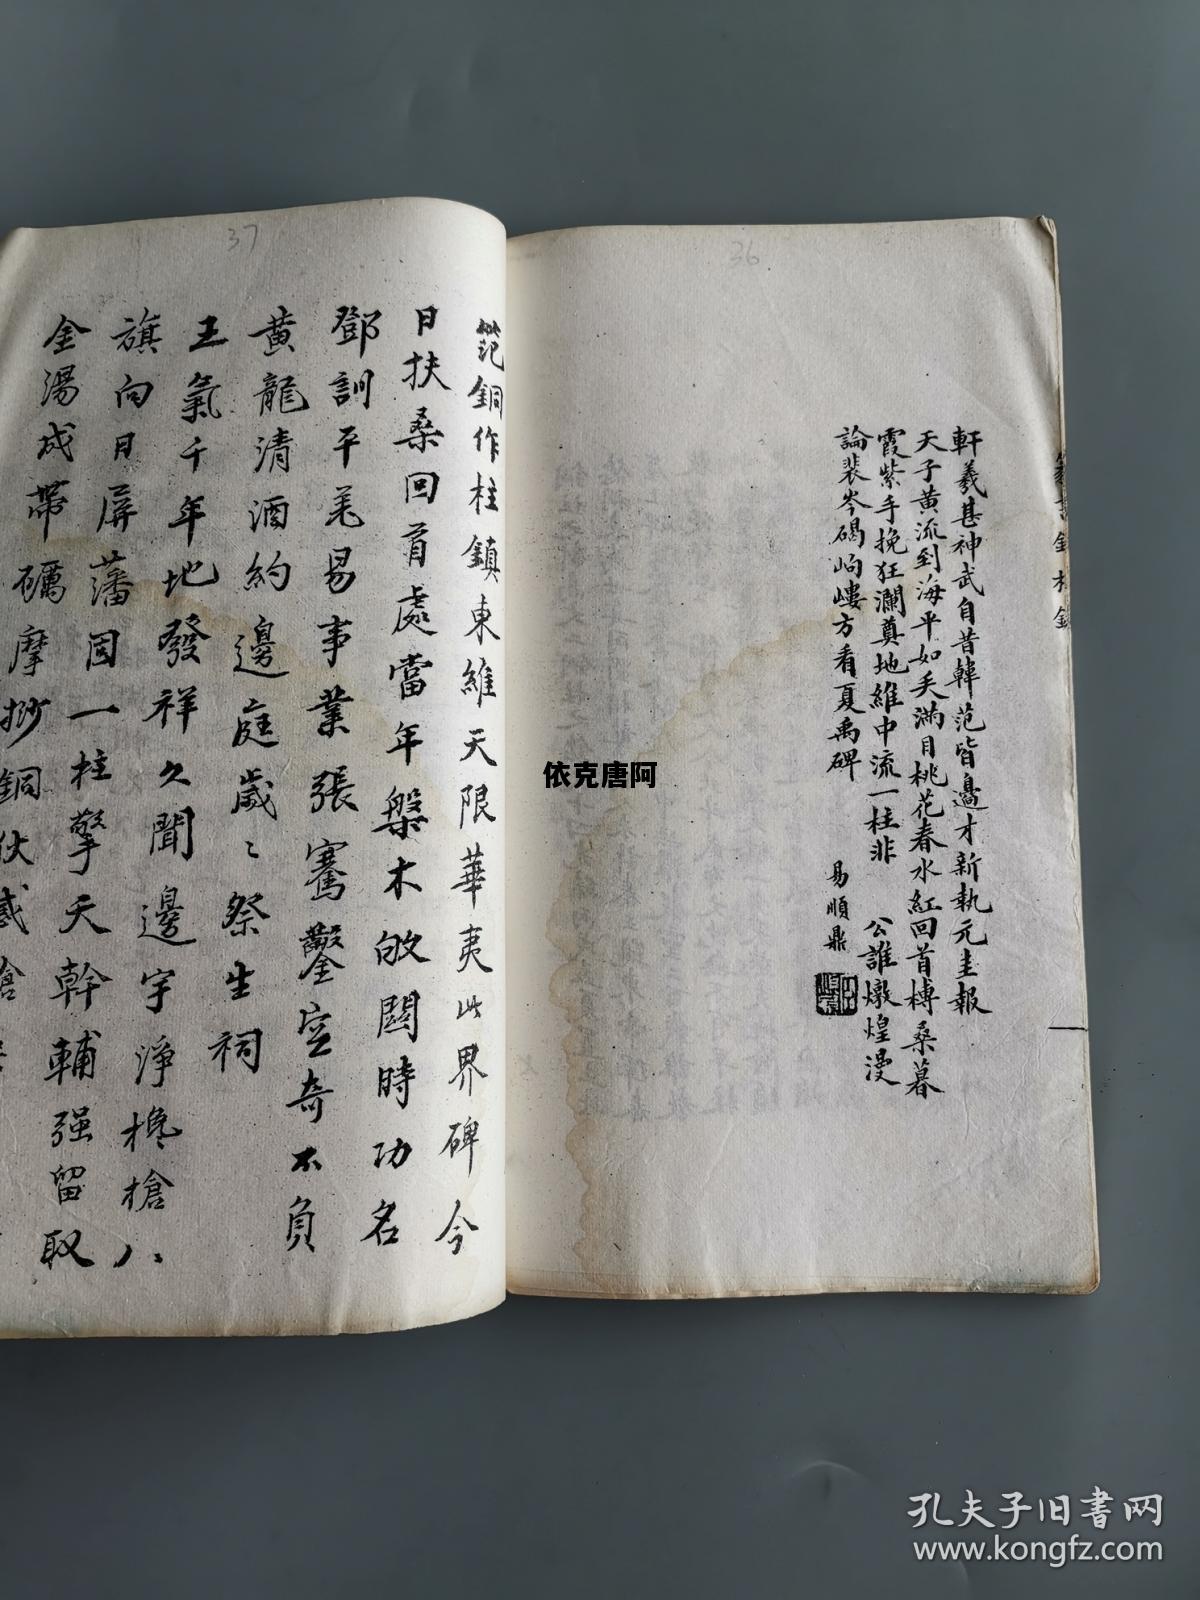 36
軒羲甚神武自昔韓范皆邊才新執元圭報
天子黃流到海平如矢滿目桃花春水紅回首榑桑暮
霞紫手挽狂瀾奠地維中流一柱非 公誰燉煌漫
論裴岑碣岣嶁方看夏禹碑
易順鼎
37
範銅作柱鎮東維天限華夷此界碑今
日扶桑回首處當年槃木欵關時功名
鄧訓平羌易事業張騫鑿空奇不負
黃龍清酒約邊庭歲〻祭生祠
王氣千年地發祥久聞邊宇淨欃槍八
旗向日屏藩固一柱擎天幹輔强留取
金湯成帶礪摩挲銅
依克唐阿
孔夫子旧书网
www.kongfz.com